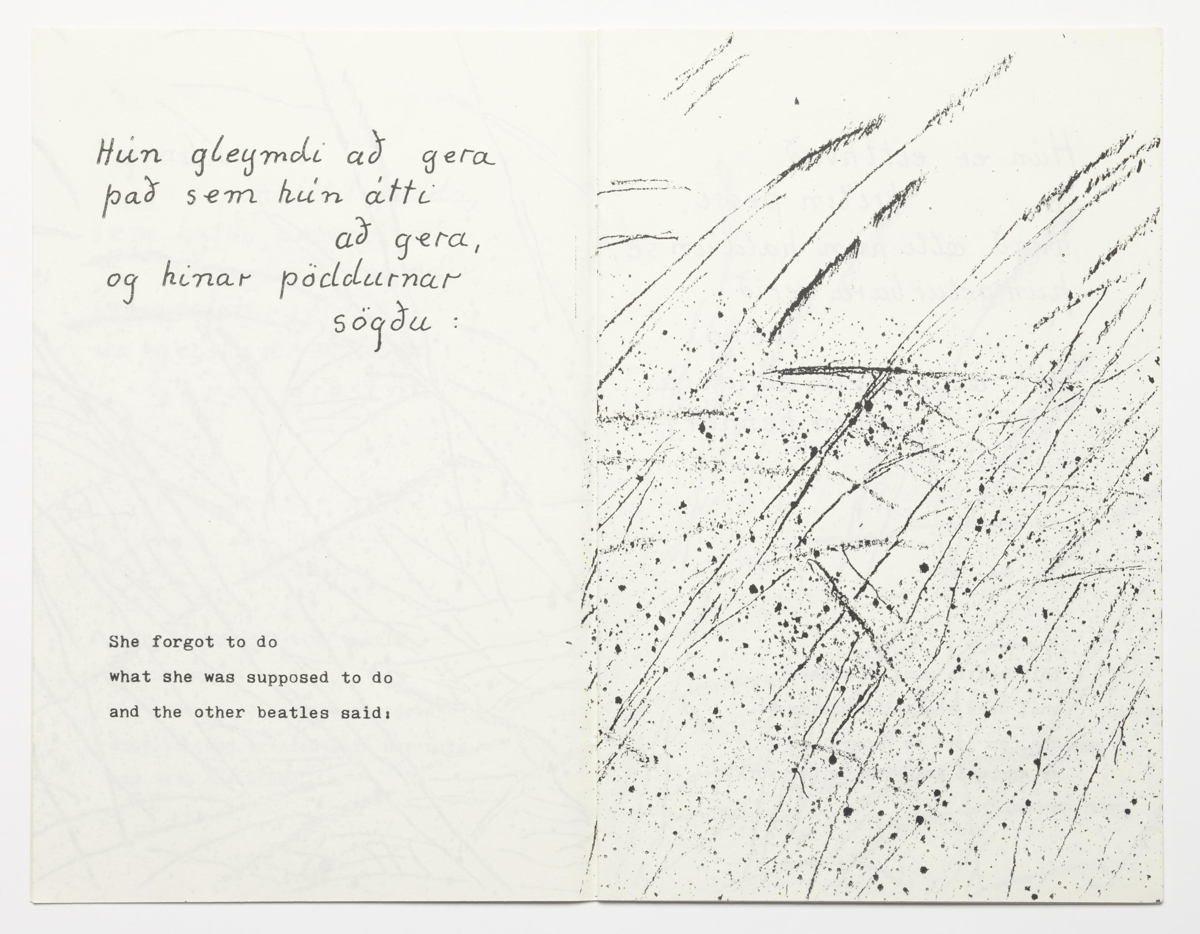 Hún gleymdi að gera
það sem hún átti
að gera,
og hinar pöddurnar
sögðu :
She forgot to do
what she was supposed to do
and the other beatles said: